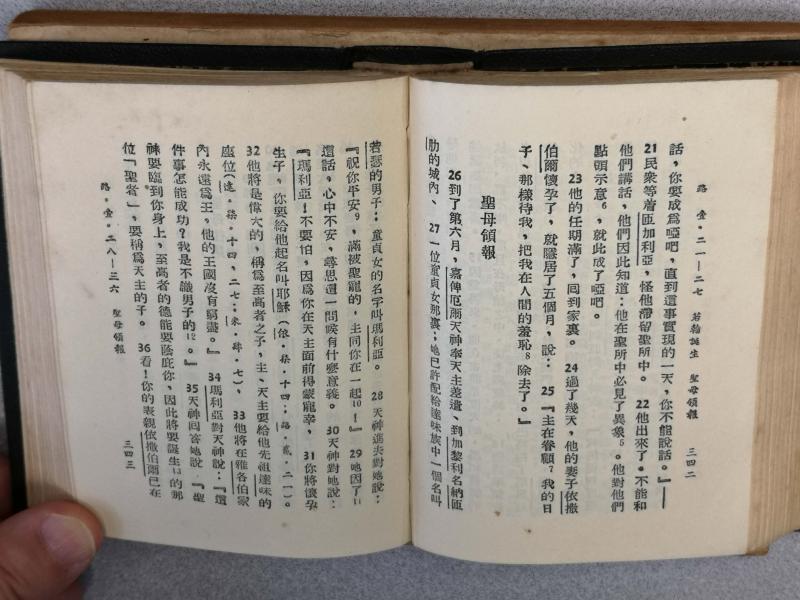 路・壹・二一—二七 若翰誕生 聖母領報 三四二
話，你要成爲啞吧，直到這事實現的一天，你不能說話。』——
21民衆等着匝加利亞，怪他滯留聖所中。 22他出來了。不能和
他們講話，他們因此知道：他在聖所中必見了異象5。他對他們
點頭示意6，就此成了啞吧。
23他的任期滿了，囘到家裏。 24過了幾天，他的妻子依撒
伯爾懷孕了，就隱居了五個月，說： 25『主在眷顧7我的日
子、那樣待我，把我在人間的羞恥8除去了。』
聖母領報
26到了第六月，嘉俾厄爾天神奉天主差遣、到加黎利名納匝
肋的城內、 27一位童貞女那裏；她已許配給達味族中一個名叫
若瑟的男子；童貞女的名字叫瑪利亞。 28天神進去對她說：
『祝你平安9，滿被聖寵的，主同你在一起10！』 29她因了11
這話，心中不安，尋思這一問候有什麼意義。 30天神對她說：
『瑪利亞！不要怕，因爲你在天主面前得蒙寵幸， 31你將懷孕
生子，你要給他起名叫耶穌（依・柒・十四；路・貳・二一）。
32他將是偉大的，稱爲至高者之子，主、天主要給他先祖達味的
座位（達・柒・十四，二七；米・肆・七）， 33他將在雅各伯家
內永遠爲王，他的王國沒有窮盡。』 34瑪利亞對天神說：『這
件事怎能成功？我是不識男子的12。』 35天神囘答她說：『聖
神要臨到你身上，至高者的德能要蔭庇你，因此將要誕生13的那
位「聖者」，要稱爲天主的子。 36看！你的表親依撒伯爾已在
路・壹・二八—三六 聖母領報 三四三